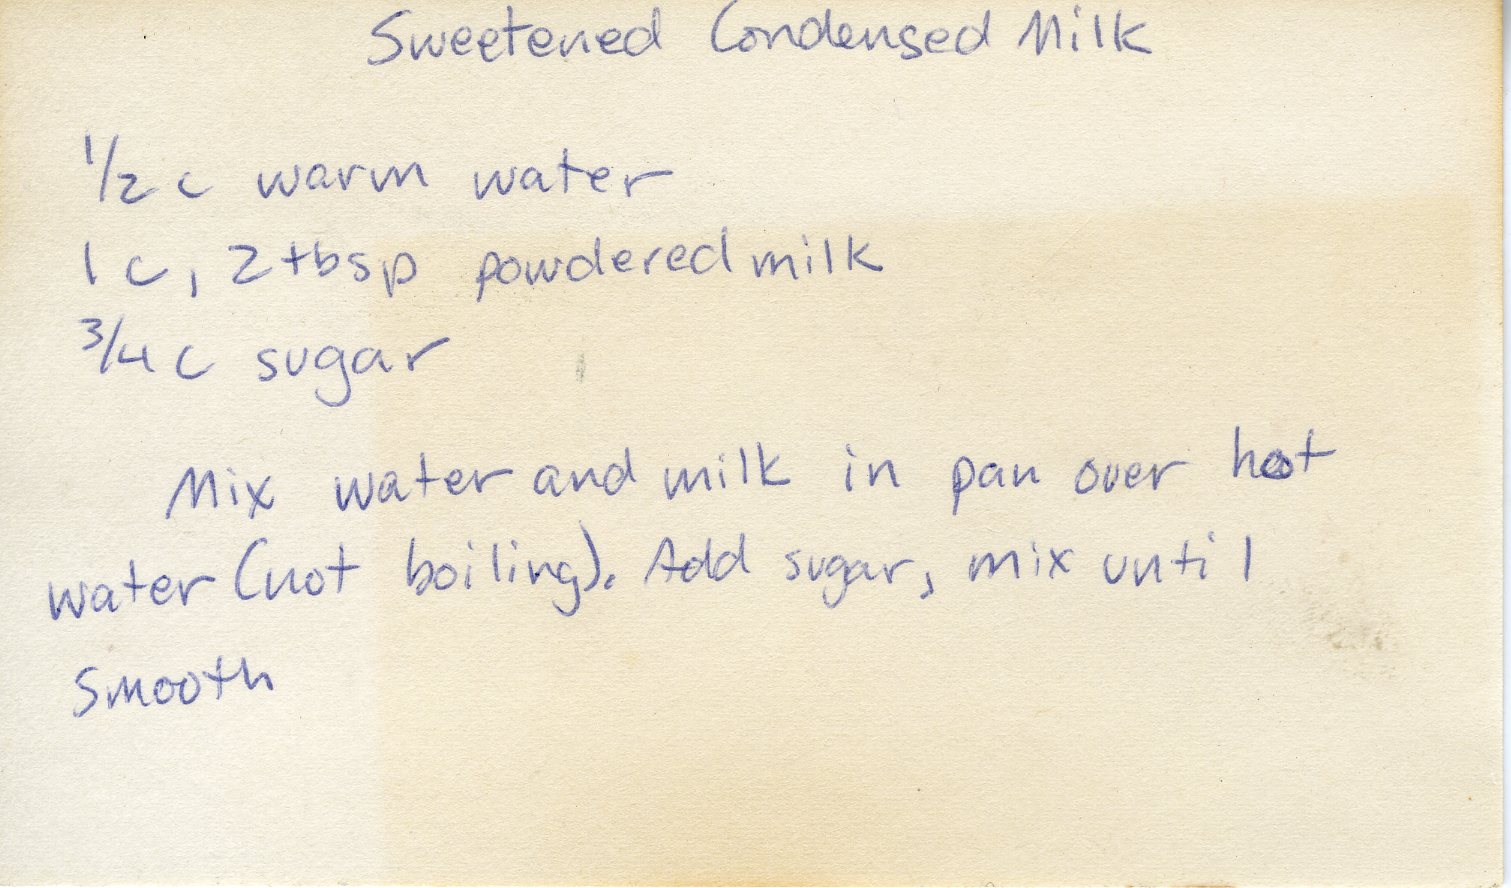 Sweetened Condensed Milk
1/2 c warm water
1 c, 2 tbsp powdered milk
3/4 c sugar
Mix water and milk in pan over hot
water (not boiling). Add sugar, mix until
smooth